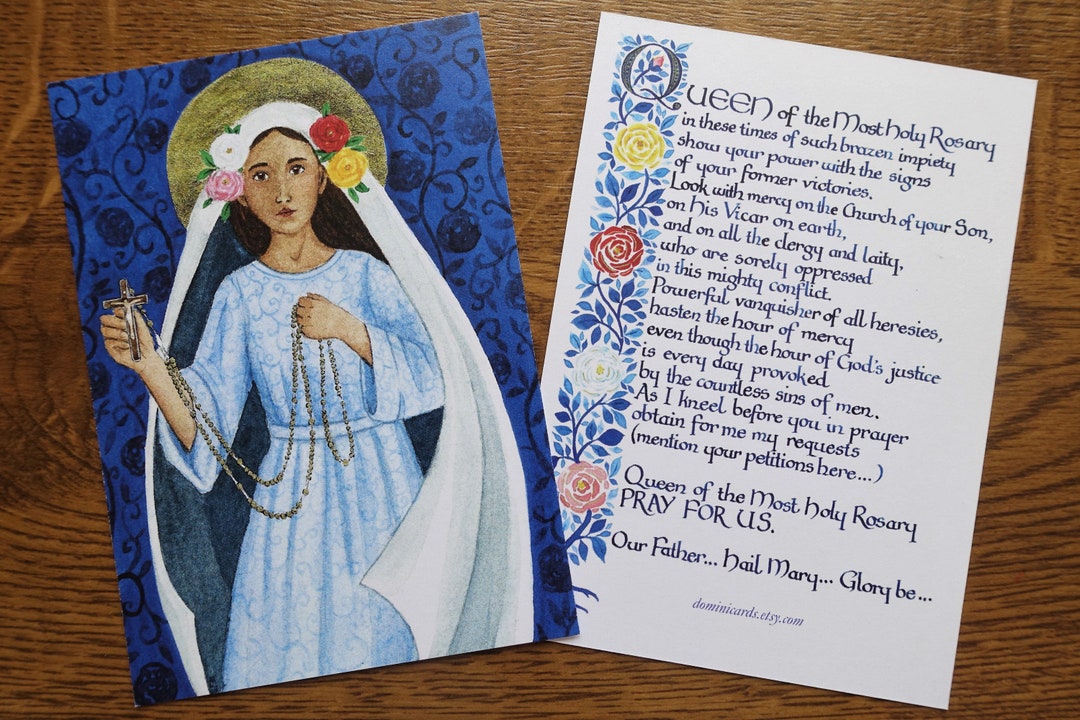 Queen of the Most Holy Rosary
in these times of such brazen impiety
show your power with the signs
of your former victories.
Look with mercy on the Church of your Son,
on His Vicar on earth,
and on all the clergy and laity,
who are sorely oppressed
in this mighty conflict.
Powerful vanquisher of all heresies,
hasten the hour of mercy
even though the hour of God's justice
is every day provoked
by the countless sins of men.
As I kneel before you in prayer
obtain for me my requests
(mention your petitions here...)
Queen of the Most Holy Rosary
PRAY FOR US.
Our Father... Hail Mary... Glory be...
dominicards.etsy.com